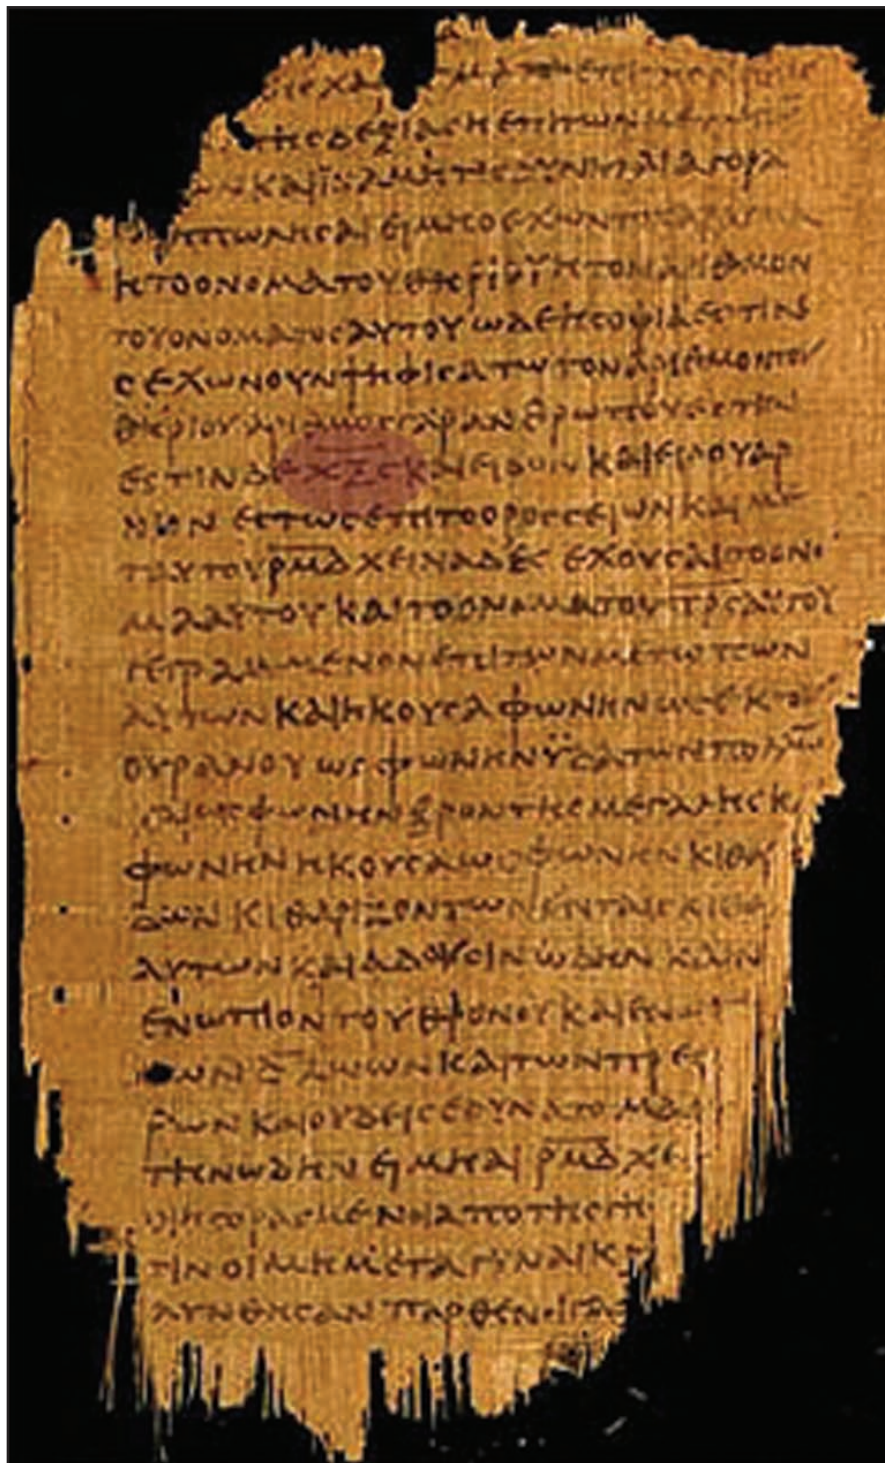 ΤΗϹΔΕΞΙΑϹΗΕΠΙΤΩΝΜΕ
ΝΚΑΙΪΝΑΜΗΤΙϹΔΥΝΗΤΑΙΑΓΟΡΑ
ΠΩΛΗϹΑΙΕΙΜΗΟΕΧΩΝΤΟΧΑΡΑΓΜΑ
ΗΤΟΟΝΟΜΑΤΟΥΘΗΡΙΟΥΗΤΟΝΑΡΙΘΜΟΝ
ΤΟΥΟΝΟΜΑΤΟϹΑΥΤΟΥΩΔΕΗϹΟΦΙΑΕϹΤΙΝ
ΕΧΩΝΟΥΝΨΗΦΙϹΑΤΩΤΟΝΑΡΙΘΜΟΝΤΟΥ
ΘΗΡΙΟΥΑΡΙΘΜΟϹΓΑΡΑΝΘΡΩΠΟΥΕϹΤΙΝ
ΕϹΤΙΝΔΕΧΞϚΚΑΙΕΙΔΟΝΚΑΙΕΙΔΟΥΑΡ
ΝΙΟΝΕϹΤΩϹΕΠΙΤΟΟΡΟϹϹΕΙΩΝΚΑΙΜΕ
ΤΑΥΤΟΥΡΜΔΧΕΙΛΙΑΔΕϹΕΧΟΥϹΑΙΤΟΟΝΟ
ΜΑΑΥΤΟΥΚΑΙΤΟΟΝΟΜΑΤΟΥΠΡϹΑΥΤΟΥ
ΓΕΓΡΑΜΜΕΝΟΝΕΠΙΤΩΝΜΕΤΩΠΩΝ
ΑΥΤΩΝΚΑΙΗΚΟΥϹΑΦΩΝΗΝΩϹΕΚΤΟΥ
ΟΥΡΑΝΟΥΩϹΦΩΝΗΝΫΔΑΤΩΝΠΟΛΛΩ
ΚΑΙΩϹΦΩΝΗΝΒΡΟΝΤΗϹΜΕΓΑΛΗϹΚ
ΦΩΝΗΝΗΚΟΥϹΑΩϹΦΩΝΗΝΚΙΘΑ
ΔΩΝΚΙΘΑΡΙΖΟΝΤΩΝΕΝΤΑΙϹΚΙΘΑ
ΑΥΤΩΝΚΑΙΑΔΟΥϹΙΝΩΔΗΝΚΑΙΝ
ΕΝΩΠΙΟΝΤΟΥΘΡΟΝΟΥΚΑΙΕΝΩ
ΩΝΔΖΩΩΝΚΑΙΤΩΝΠΡΕϹ
ΡΩΝΚΑΙΟΥΔΕΙϹΕΔΥΝΑΤΟΜΑ
ΤΗΝΩΔΗΝΕΙΜΗΑΙΡΜΔΧΕ
ΟΙΗΓΟΡΑϹΜΕΝΟΙΑΠΟΤΗϹΓΗ
ΤΙΝΟΙΜΗΜΕΤΑΓΥΝΑΙΚ
ΛΥΝΘΗϹΑΝΠΑΡΘΕΝΟΙΓΑΡ